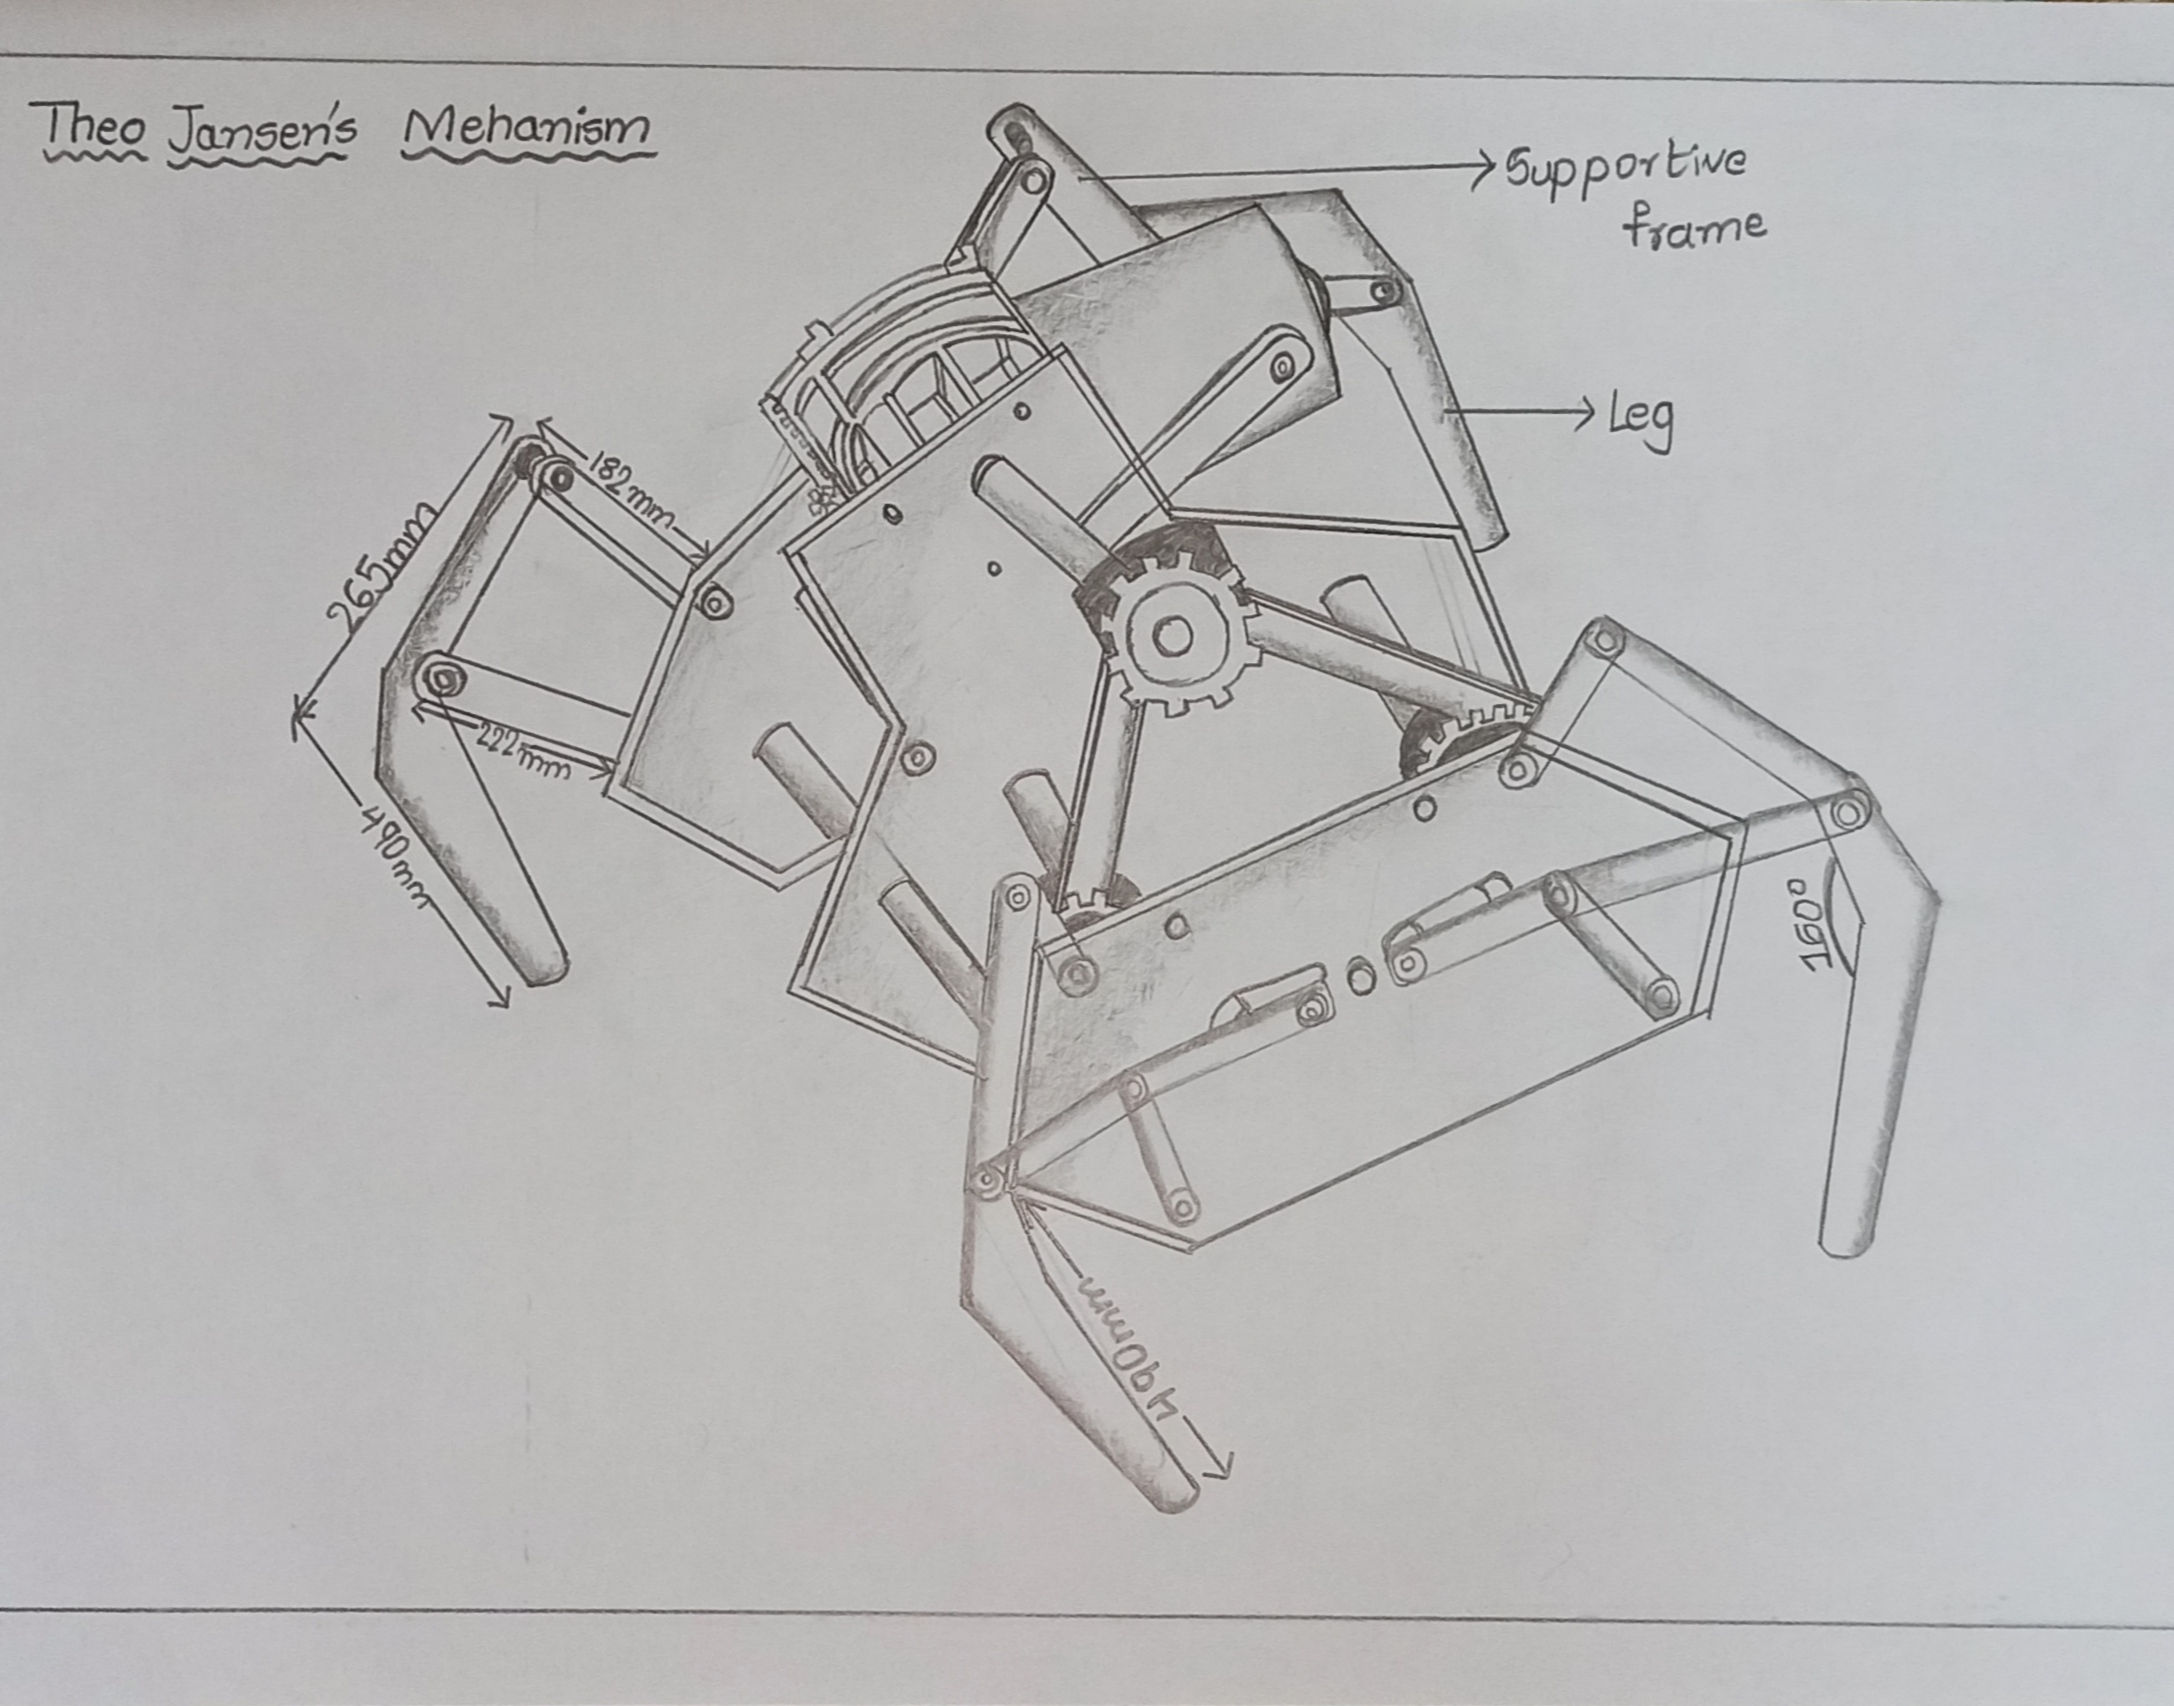 Theo Jansen's Mehanism
Supportive
frame
Leg
182mm
265mm
222mm
490mm
160°
490mm